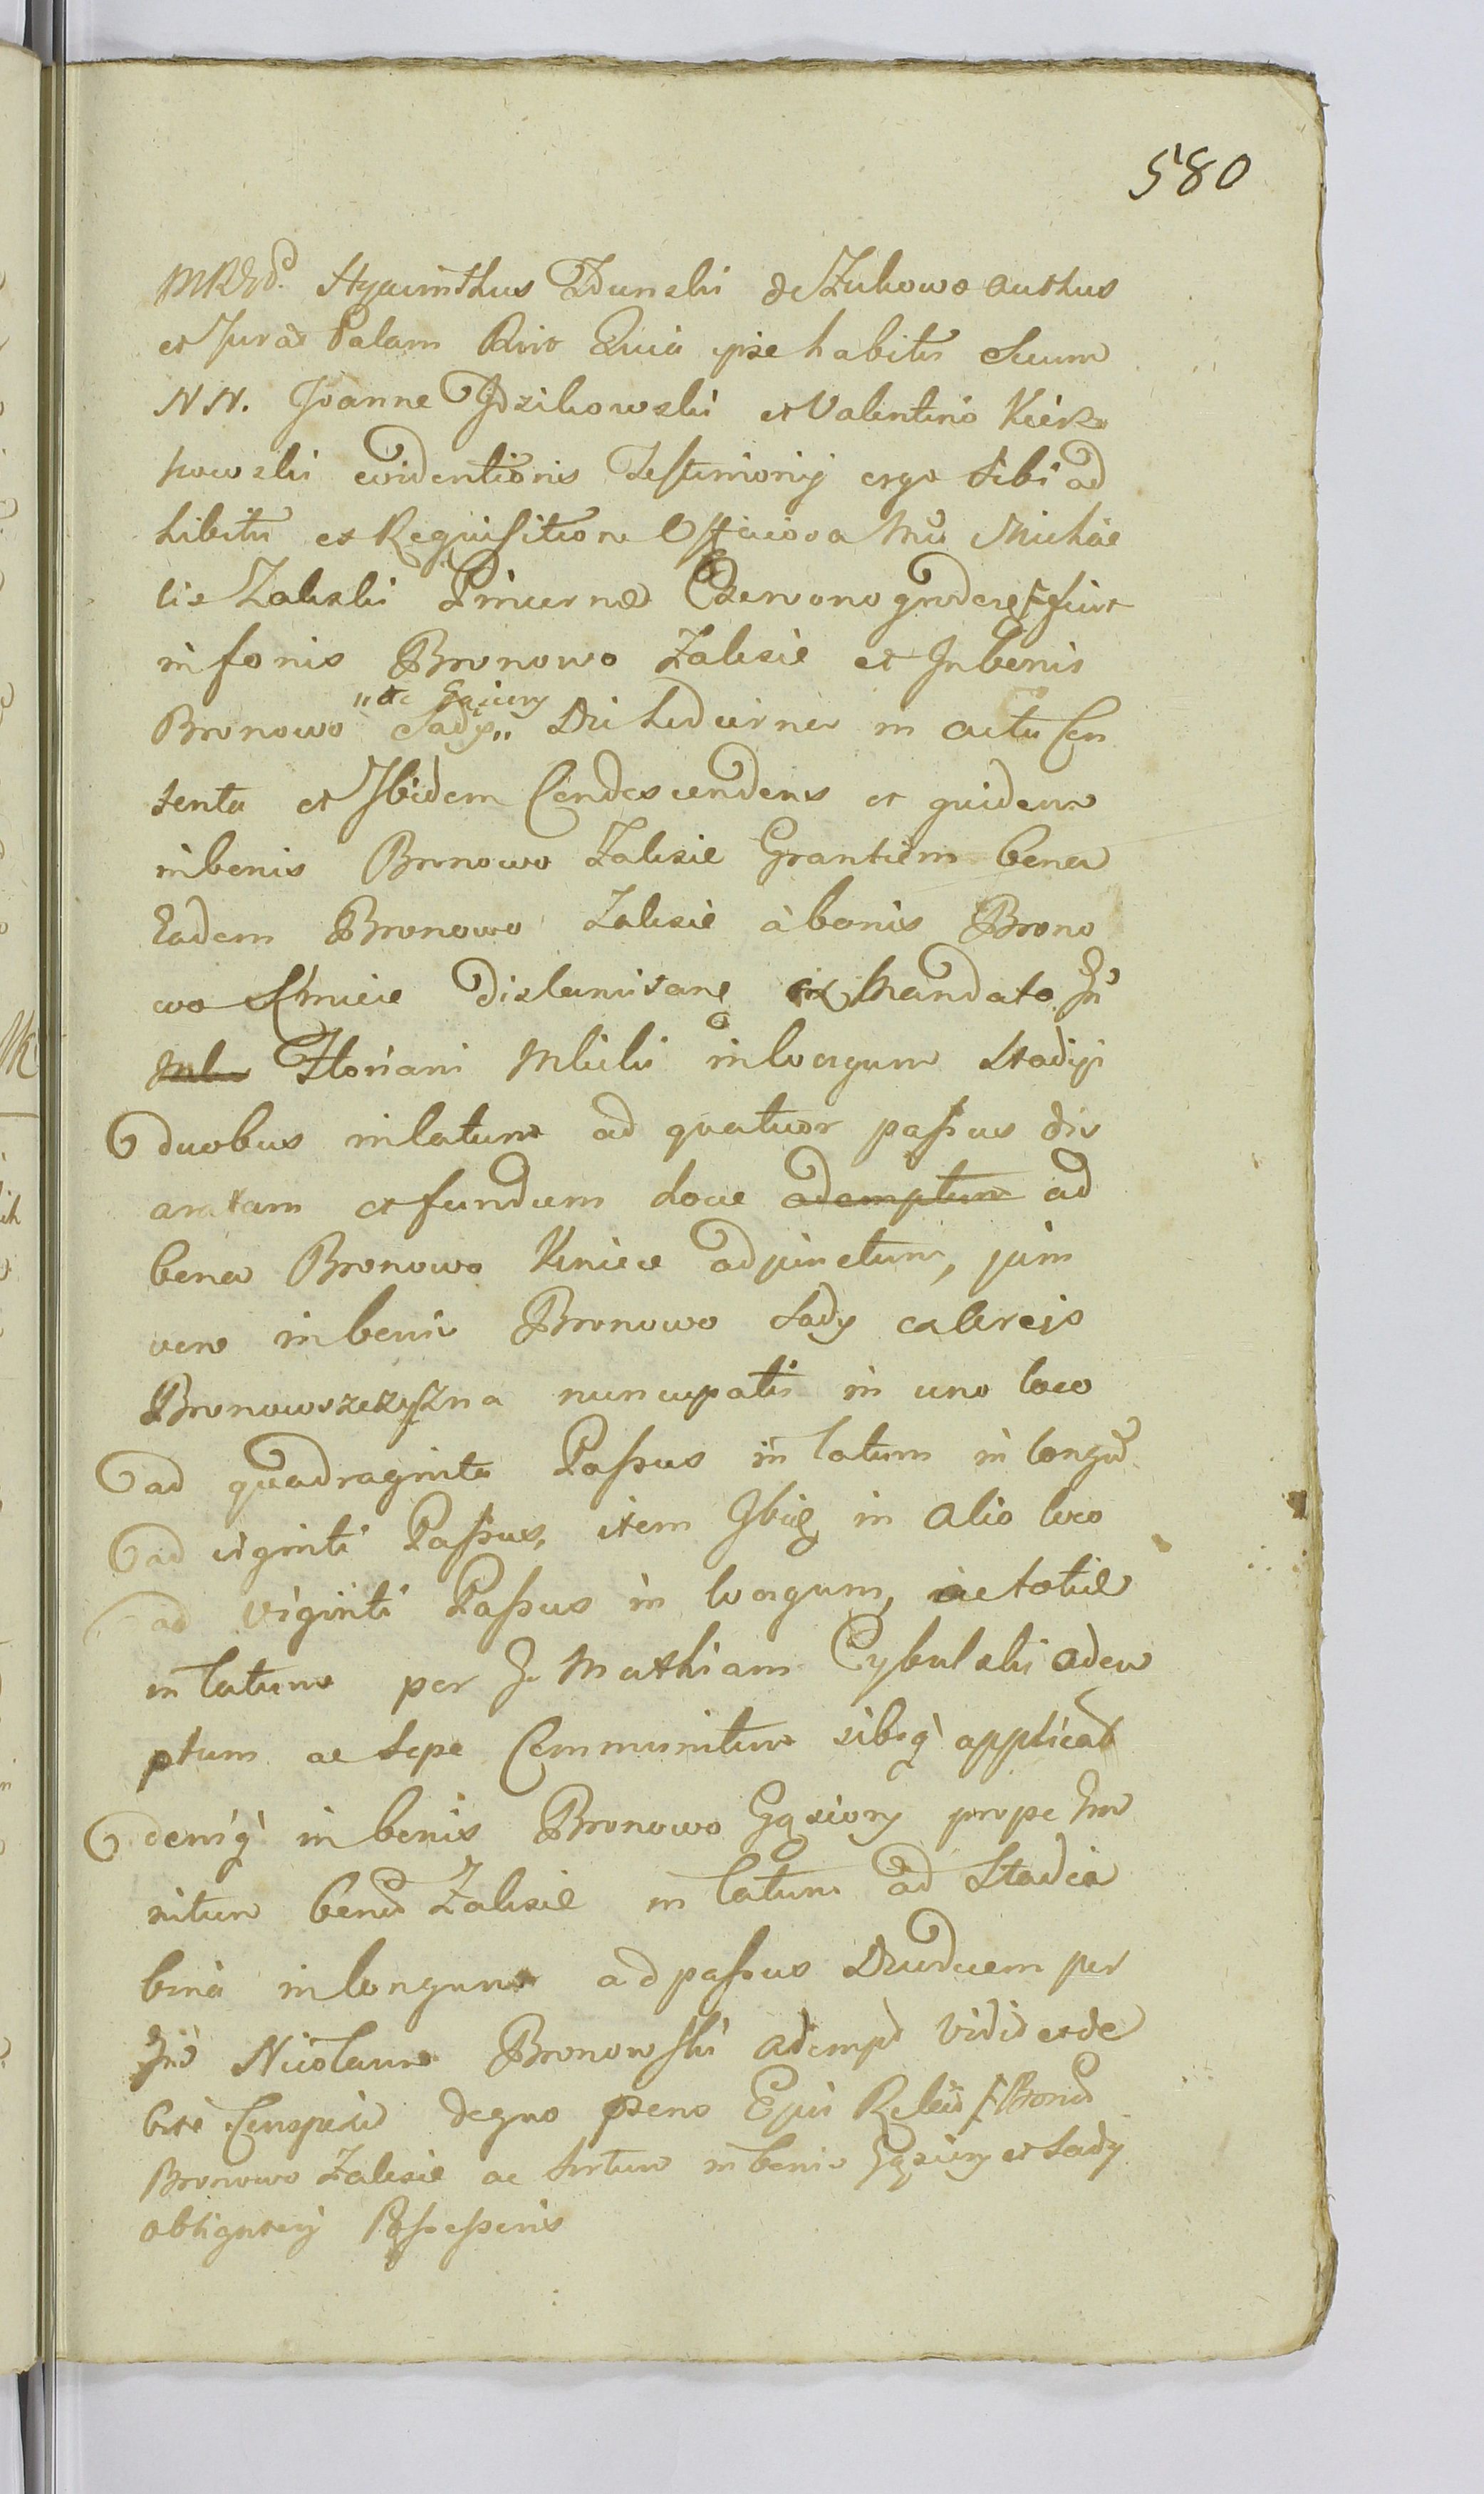 580
Hyacinthus Zdunski de Zukowo authus
et Jurat Palam Quia ipse habitis Secum
NN. Joanne Jdzikowski et Valentino Kierz
kowski evidentioris Testimonij ergo Sibi ad
hibitis ex Requisitione Officiosa Michae
lis Zaleski Pincernæ fuit
in bonis Bronowo Zalesie et In bonis
"et Gąsiory
Bronowo Sady" in actu Con
tenta et Ibidem Condescendens et quidem
in bonis Bronowo Zalesie bona
Eadem Bronowo Zalesie à bonis Brono
wo Kmiece ex Mandato
Floriani Mlicki in longum Stadijs
duobus in latum ad quatuor passus
aratam et fundum ademptum ad
bona Bronowo Kmiece adjunctum, jam
vero in bonis Bronowo Sady
nuncupatis in uno loco
ad quadraginta Passus in latum in longū
ad viginti Passus, item in alio loco
ad viginti Passus in longum, ac totid
in latum per Mathiam Cybulski adem
ptum ac Sepe Communitum sibiq applicat
deniq in bonis Bronowo Gąsiory prope
bonor Zalesie in latum ad Stadia
bina in longum ad passus per
Nicolaum Bronowski adempt vidit et de
bite
Bronowo Zalesie ac in bonis Gąsiory et Sady
obligatorij Possessoris